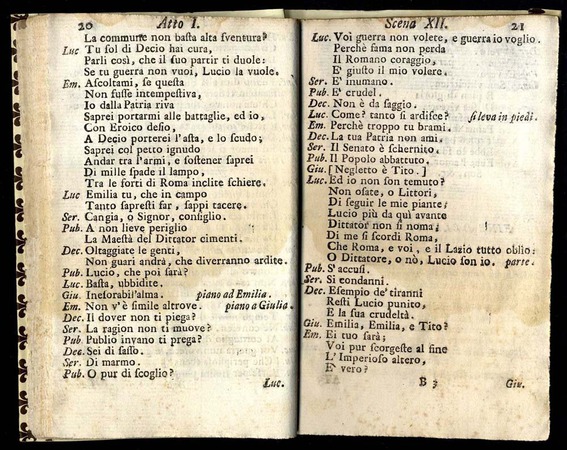 20 Atto I.
La commune non basta alta sventura?
Luc Tu sol di Decio hai cura,
Parli così, che il suo partir ti duole:
Se tu guerra non vuoi, Lucio la vuole.
Em. Ascoltami, se questa
Non fusse intempestiva,
Io dalla Patria riva
Saprei portarmi alle battaglie, ed io,
Con Eroico desio,
A Decio porterei l'asta, e lo scudo;
Saprei col petto ignudo
Andar tra l'armi, e sostener saprei
Di mille spade il lampo,
Tra le forti di Roma inclite schiere.
Luc Emilia tu, che in campo
Tanto sapresti far, sappi tacere.
Ser. Cangia, o Signor, consiglio.
Pub. A non lieve periglio
La Maestà del Dittator cimenti.
Dec. Oltaggiate le genti,
Non guari andrà, che diverranno ardite.
Pub. Lucio, che poi sarà?
Luc. Basta, ubbidite.
Giu. Inesorabil'alma. piano ad Emilia.
Em. Non v'è simile altrove. piano a Giulia.
Dec. Il dover non ti piega?
Ser. La ragion non ti muove?
Pub. Publio invano ti prega?
Dec. Sei di sasso.
Ser. Di marmo.
Pub. O pur di scoglio?
Luc.
Scena XII. 21
Luc. Voi guerra non volete, e guerra io voglio.
Perchè fama non perda
Il Romano coraggio,
E' giusto il mio volere.
Ser. E' inumano.
Pub. E' crudel.
Dec. Non è da saggio.
Luc. Come? tanto si ardisce? si leva in piedi.
Em. Perchè troppo tu brami.
Dec. La tua Patria non ami.
Ser. Il Senato è schernito.
Pub. Il Popolo abbattuto.
Giu. [Negletto è Tito.]
Luc. Ed io non son temuto?
Non osate, o Littori,
Di seguir le mie piante;
Lucio più da quì avante
Dittator non si noma;
Di me si scordi Roma,
Che Roma, e voi, e il Lazio tutto oblio:
O Dittatore, o nò, Lucio son io. parte.
Pub. S'accusi.
Ser. Si condanni.
Dec. Esempio de'tiranni
Resti Lucio punito,
E la sua crudeltà.
Giu. Emilia, Emilia, e Tito?
Em. Ei tuo sarà;
Voi pur scorgeste al fine
L'Imperioso altero,
E' vero?
B 3 Giu.